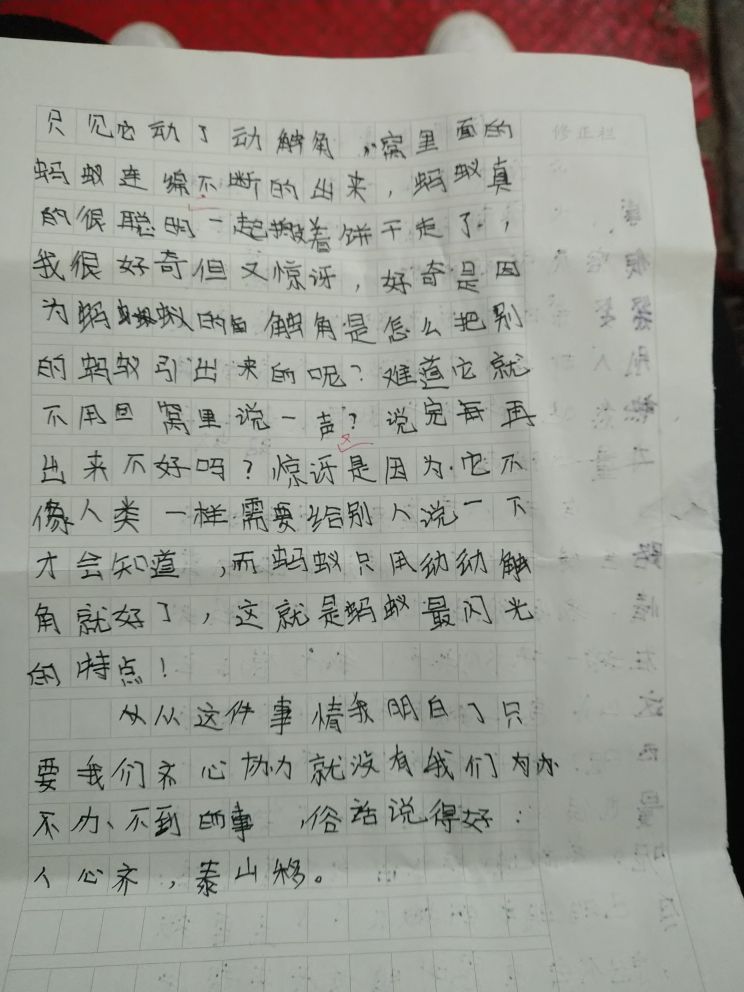 修正栏
只见它动了动触角，窝里面的
蚂蚁连绵不断的出来，蚂蚁真
的很聪明一起搬着饼干走了，
我很好奇但又惊讶，好奇是因
为蚂蚁的触角是怎么把别
的蚂蚁引出来的呢？难道它就
不用回窝里说一声？说完再
出来不好吗？惊讶是因为它不
像人类一样需要给别人说一下
才会知道，而蚂蚁只用动动触
角就好了，这就是蚂蚁最闪光
的特点！
从从这件事情我明白了只
要我们齐心协力就没有我们办
不办、不到的事，俗话说得好：
人心齐，泰山移。